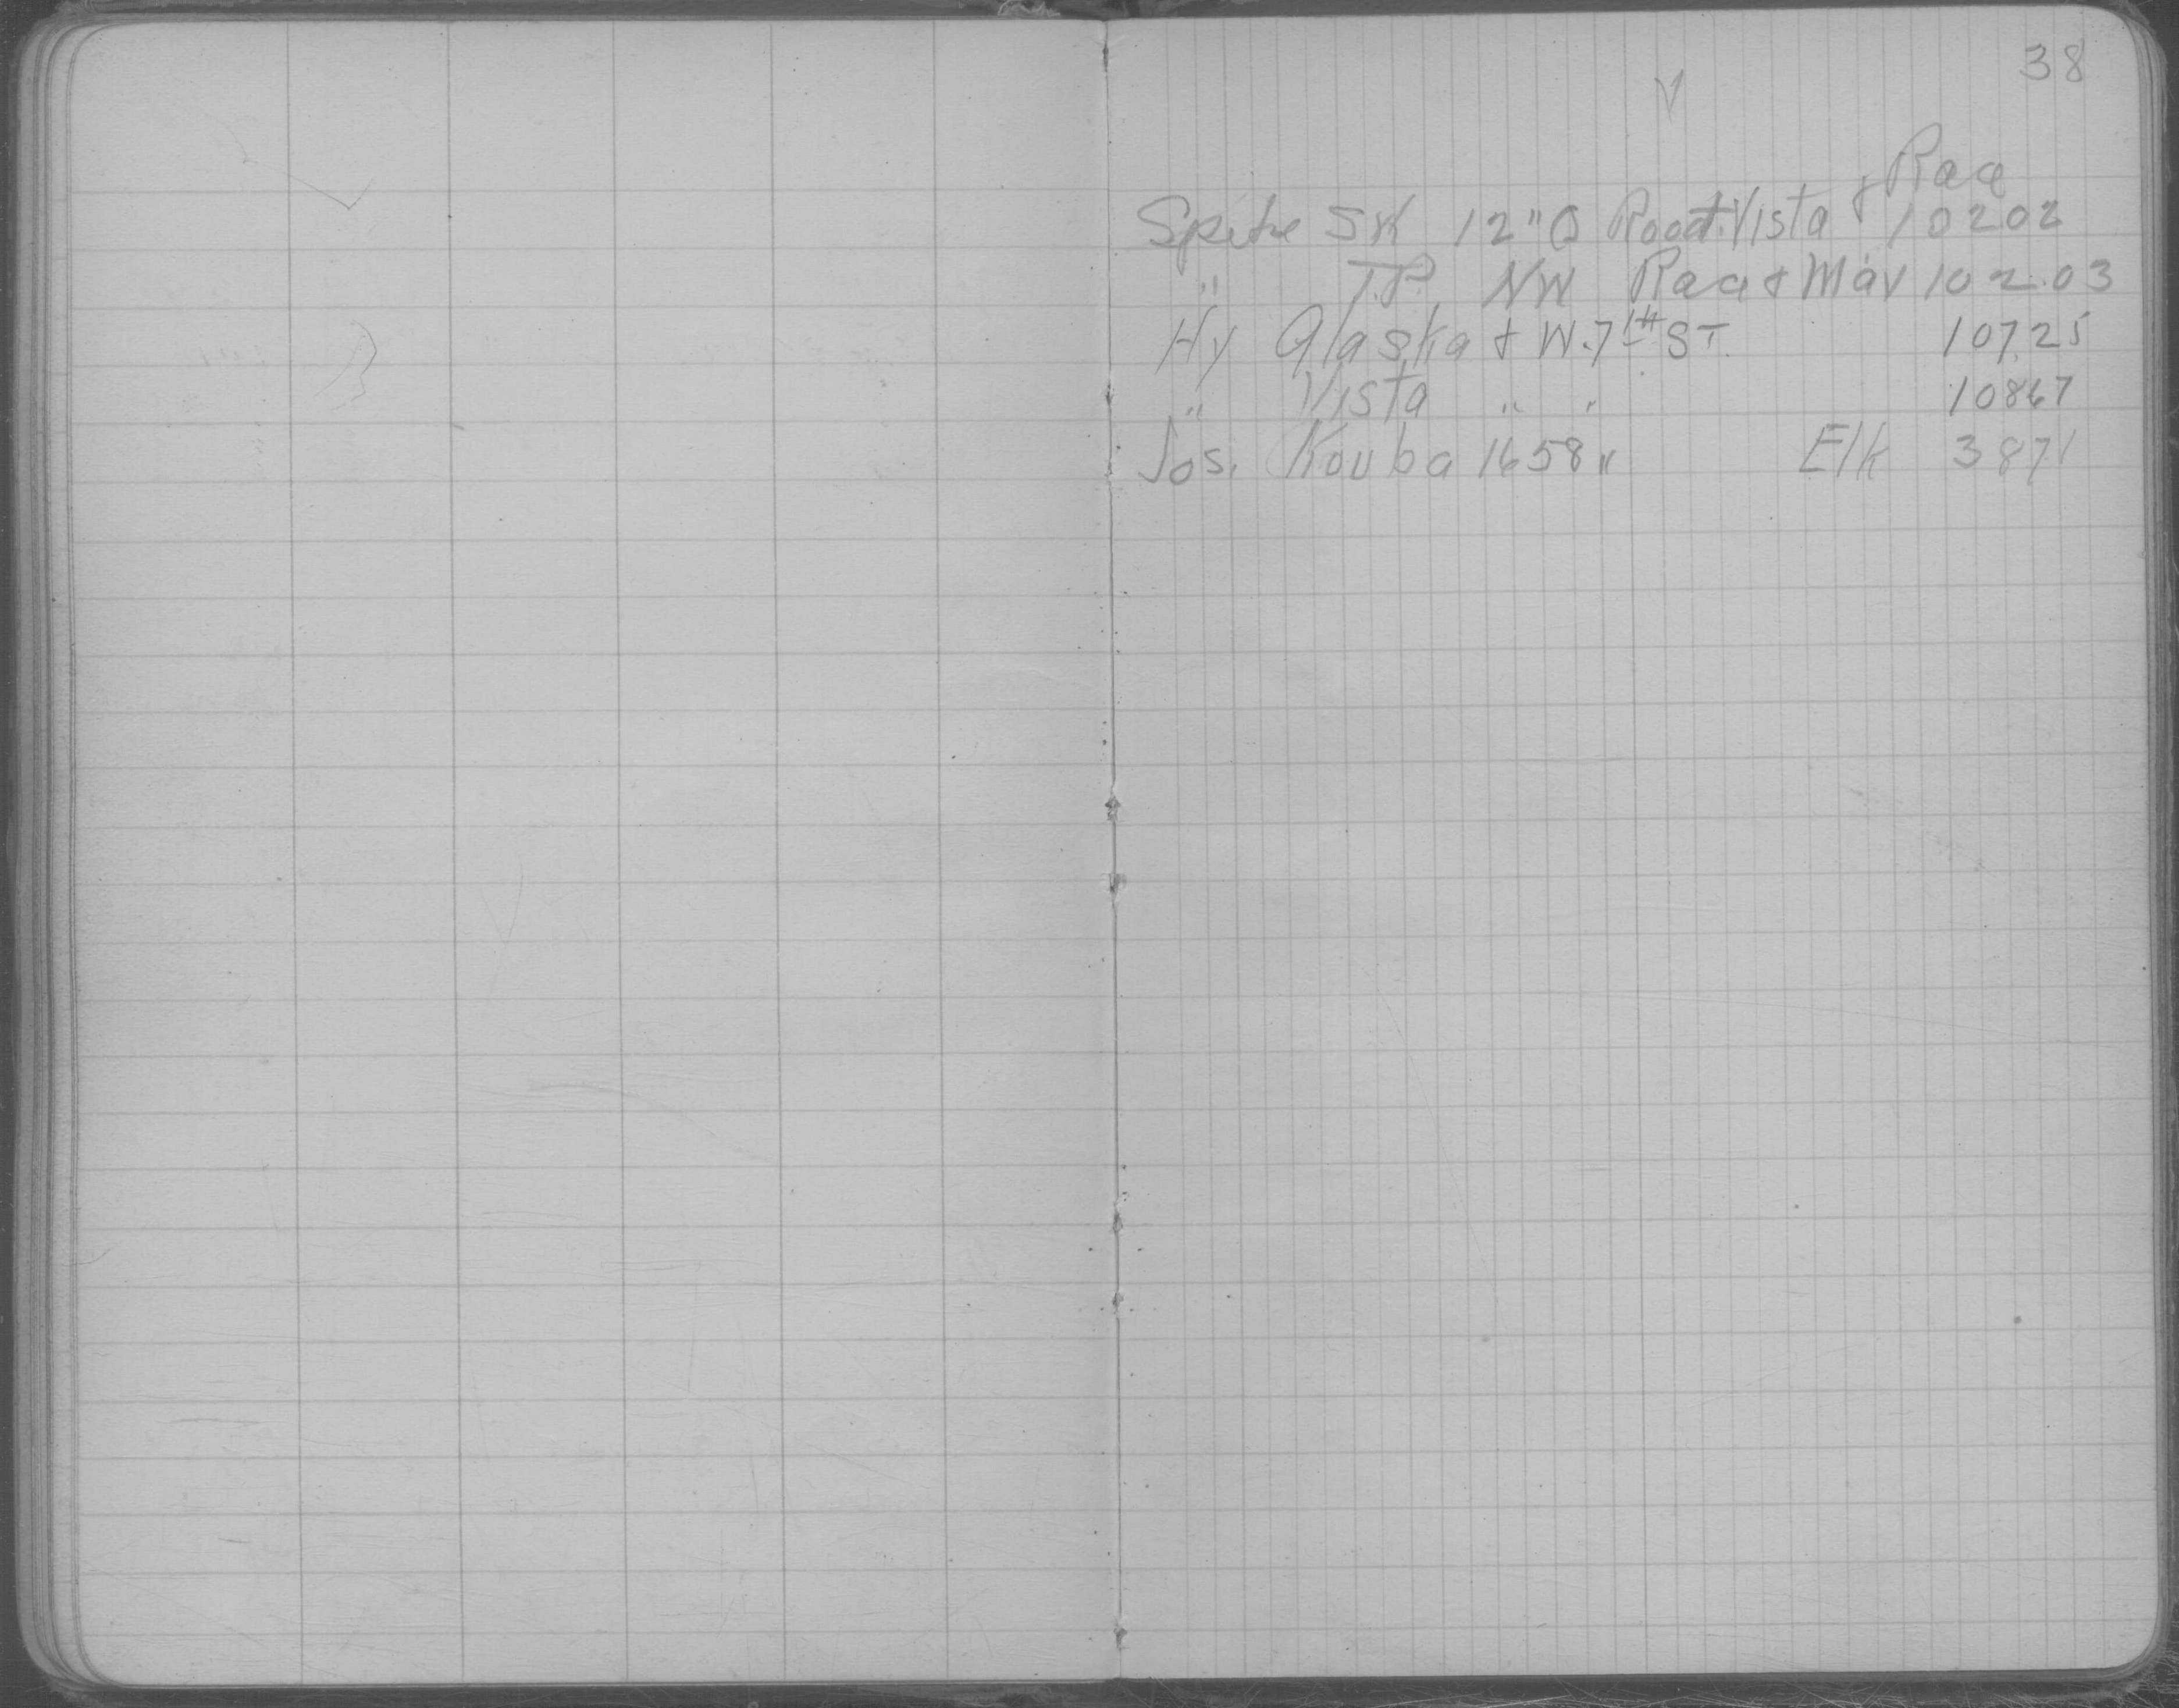 38
& Race
Spike SW 12" O Root Vista 102.02
" T.P. NW Race & May 102.03
Hy Alaska & W. 7TH ST. 107.25
" Vista " " 108.67
Jos. Kouba 1658 " Elk 3871